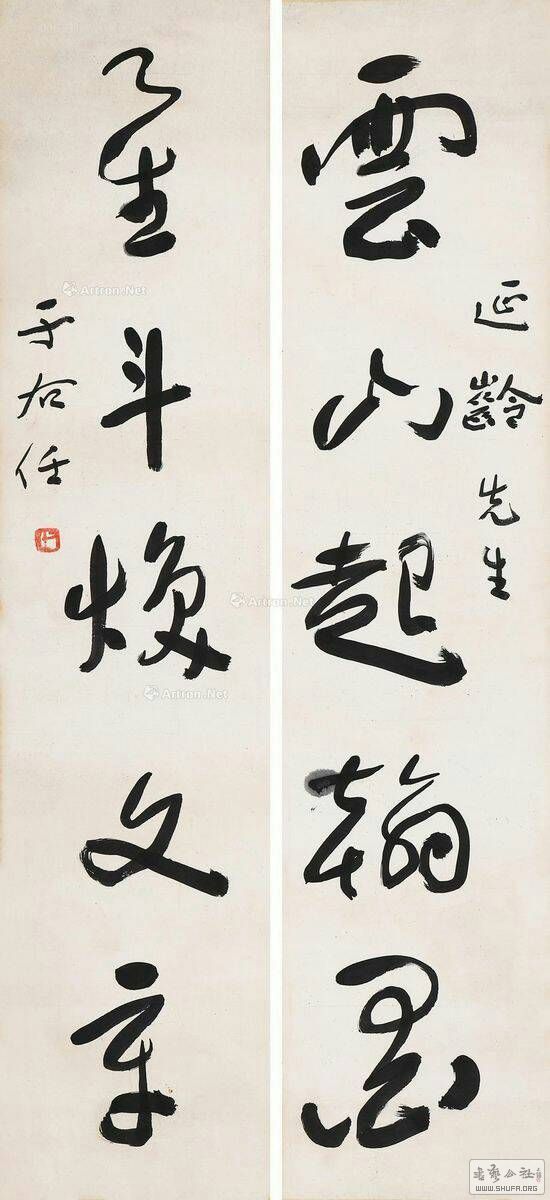 延齡先生
雲山起翰墨
星斗煥文章
于右任
Artron.Net
Artron.Net
Artron.Net
書藝公社
WWW.SHUFA.ORG